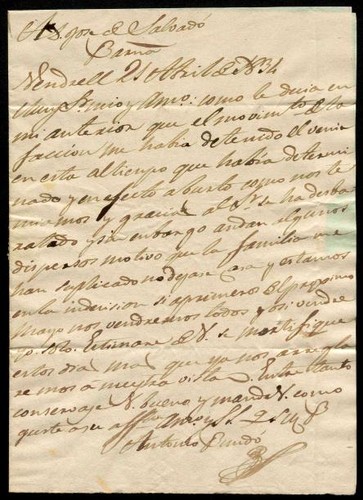 A D. Jose de Salvadó
Barna
Vendrell 21 Abril de 1834
Muy Sr. mio y Amo: como le decia en
mi anterior que el movimto de la
faccion me habia detenido el venir
en esta al tiempo que habia determi
nado y en efecto a burto como nos te
miamos y gracias al Sr. se ha desba
ratado y sin embargo andan algunos
dispersos motivo que la familia me
han suplicado no dejase casa y estamos
en la indecision si a primeros del proximo
Mayo nos vendremos todos y o si vendre
yo solo. Estimare de V. se mortifique
estos dias mas que ya nos arregla
remos a nuestra vista. Entre tanto
conservase V. bueno y mande V. como
guste a su affmo Amo y S.S. Q.S.M.B.
Antonio